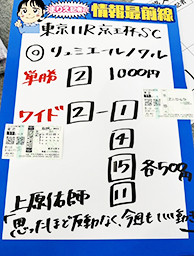 情報最前線
東京11R 京王杯SC
◎リュミエールノワル
単勝 2 1000円
ワイド 2-1
4
15 各500円
11
上原佑師
「思ったほど反動なく、今回もいい動き